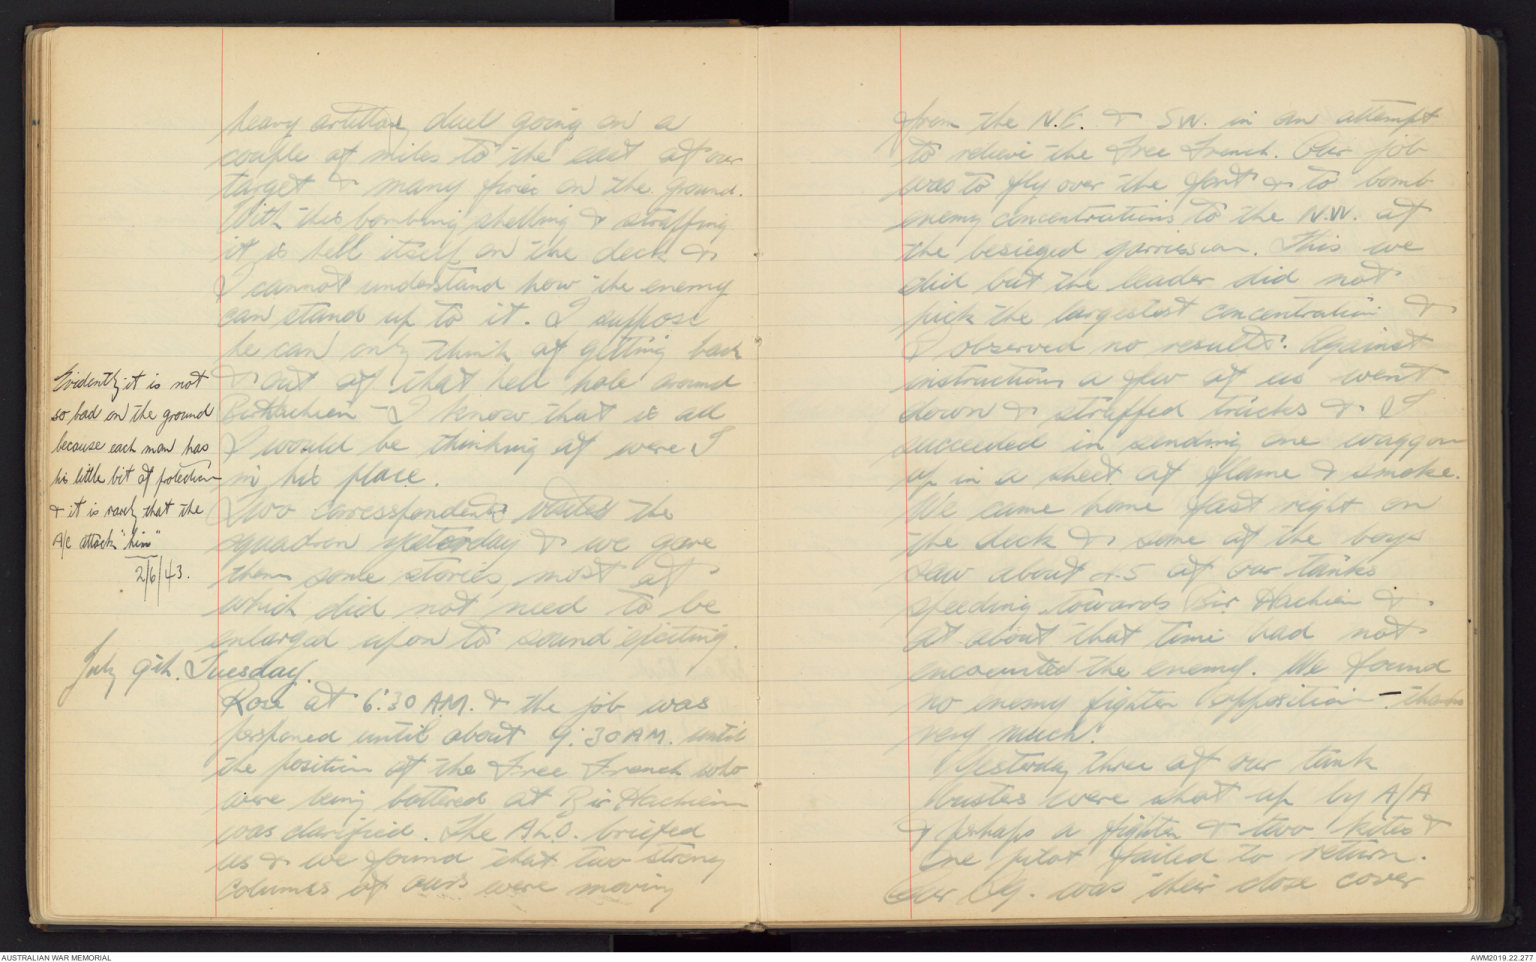 heavy artillary duel going on a
couple of miles to the east of our
target & many fires on the ground.
With this bombing shelling & straffing
it is hell itself on the deck &
I cannot understand how the enemy
can stand up to it. I suppose
he can only think of getting back
& out of that hell hole around
Bir Hachiem - I know that is all
I would be thinking of were I
in his place.
Two coresspondents visited the
squadron yesterday & we gave
them some stories, most of
which did not need to be
enlarged upon to sound exciting.
Evidently it is not
so bad on the ground
because each man has
his little bit of protection
& it is rarely that the
A/c attack "him"
2/6/43.
July 9th. Tuesday.
Rose at 6:30 AM. & the job was
postponed until about 9:30 AM. until
the position of the Free French who
were being battered at Bir Hachiem
was clarified. The A.L.O. briefed
us & we found that two strong
columns of ours were moving
from the N.E. & SW. in an attempt
to relieve the Free French. Our job
was to fly over the fort & to bomb
enemy concentrations to the N.W. of
the besieged garrission. This we
did but the leader did not
pick the largestest concentration &
I observed no results. Against
instructions a few of us went
down & straffed trucks & I
succeeded in sending one waggon
up in a sheet of flame & smoke.
We came home fast right on
the deck & some of the boys
saw about 45 of our tanks
speeding towards Bir Hachiem &
at about that time had not
encounted the enemy. We found
no enemy fighter opposition - thanks
very much!
Yesterday three of our tank
busters were shot up by A/A
& perhaps a fighter & two kites &
one pilot failed to return.
Our Sq. was their close cover
AUSTRALIAN WAR MEMORIAL
AWM2019.22.277